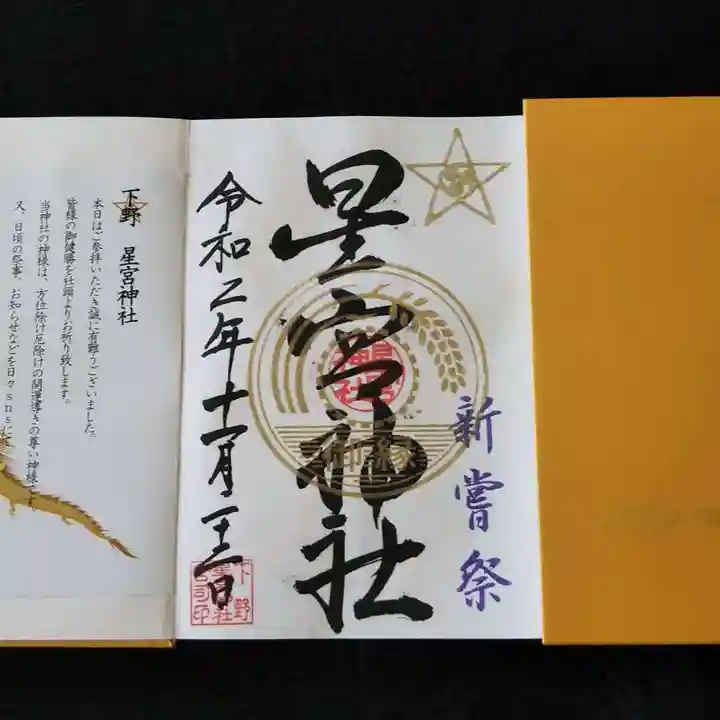 新嘗祭
星宮神社
御縁
令和二年十一月二十三日
下野
下野 星宮神社
本日はご参拝いただき誠に有難うございました。
皆様の御健勝を社頭よりお祈り致します。
当神社の神様は、方位除け厄除けの開運導きの尊い神様です。
又、日頃の祭事、お知らせなどを日々snsに